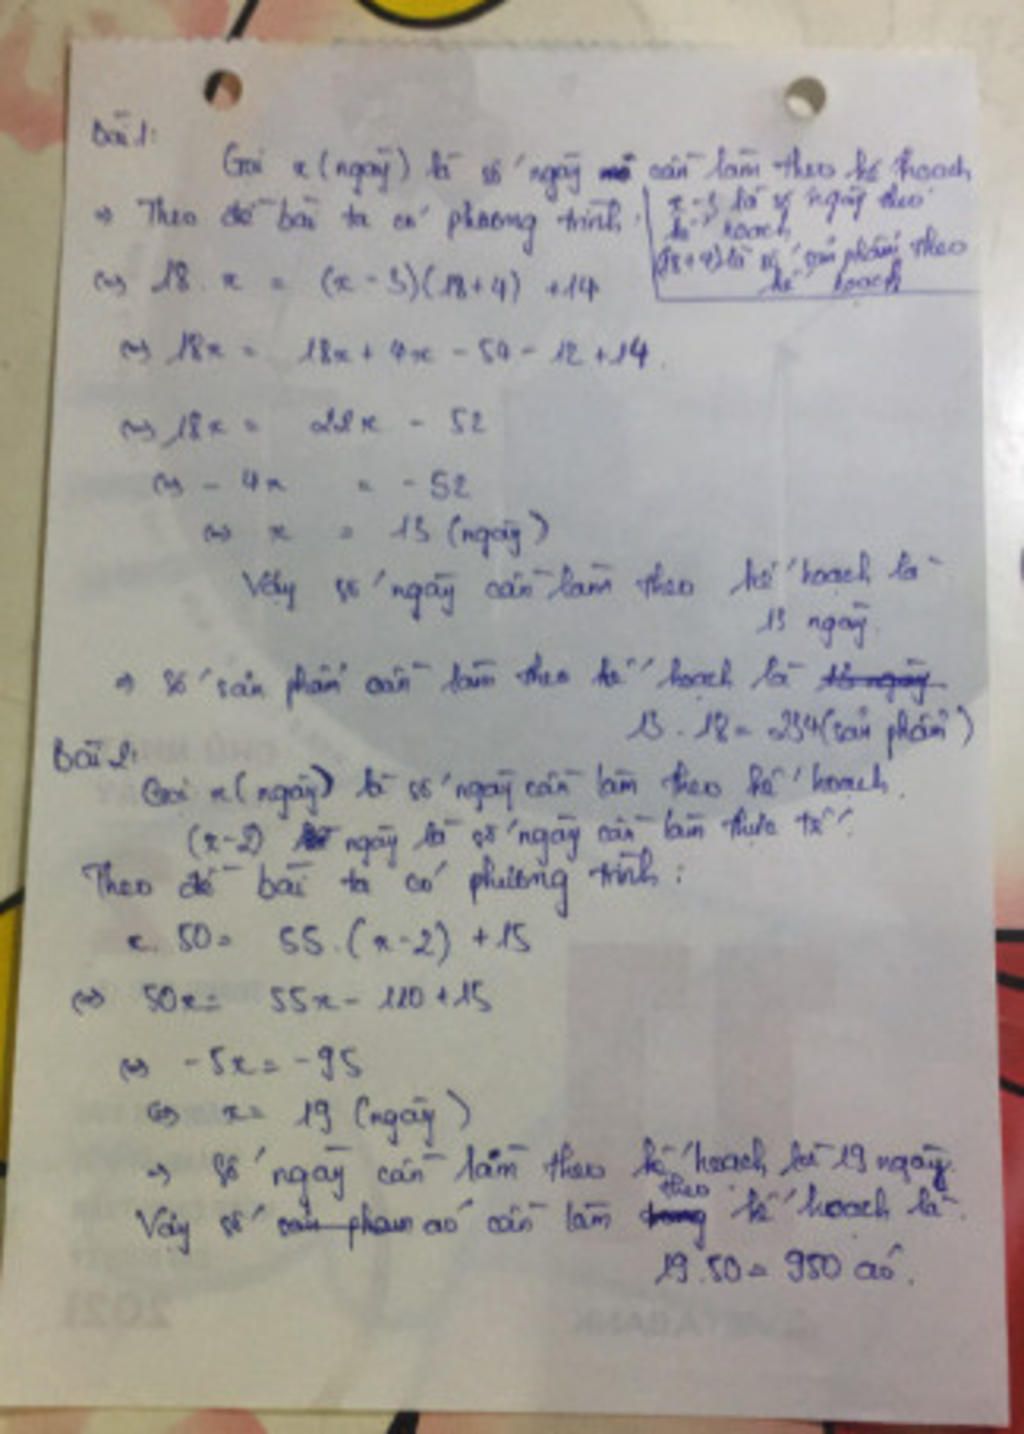 Bài 1:
Gọi x (ngày) là số ngày cần làm theo kế hoạch
⇒ Theo đề bài ta có phương trình:
x-3 là số ngày theo
kế hoạch
(18+4) là số sản phẩm theo
kế hoạch
⇔ 18 . x = (x - 3)(18+4) +14
⇔ 18x = 18x + 4x - 54 - 12 + 14
⇔ 18x = 22x - 52
⇔ - 4x = - 52
⇔ x = 13 (ngày)
Vậy số ngày cần làm theo kế hoạch là
13 ngày.
⇒ Số sản phẩm cần làm theo kế hoạch là
13 . 18 = 234 (sản phẩm)
Bài 2:
Gọi x (ngày) là số ngày cần làm theo kế hoạch.
(x-2) ngày là số ngày cần làm thực tế.
Theo đề bài ta có phương trình:
x. 50 = 55.(x-2) +15
⇔ 50x = 55x - 110 + 15
⇔ -5x = -95
⇔ x = 19 (ngày)
→ Số ngày cần làm theo kế hoạch là 19 ngày.
Vậy số sản phẩm áo cần làm theo kế hoạch là.
19.50 = 950 áo.
2021